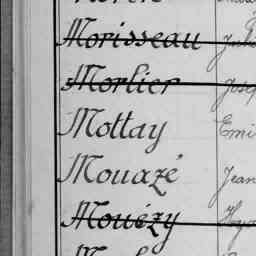 Morisseau
Morlier Jose
Mottay Emi
Mouazé Jean
Mouézy